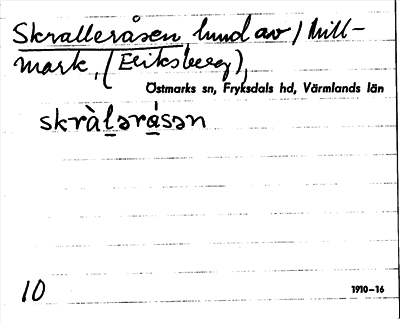 Skralleråsen lund av / Mill-
mark, (Eriksberg),
Östmarks sn, Fryksdals hd, Värmlands län
skràləråsən
10
1910–16